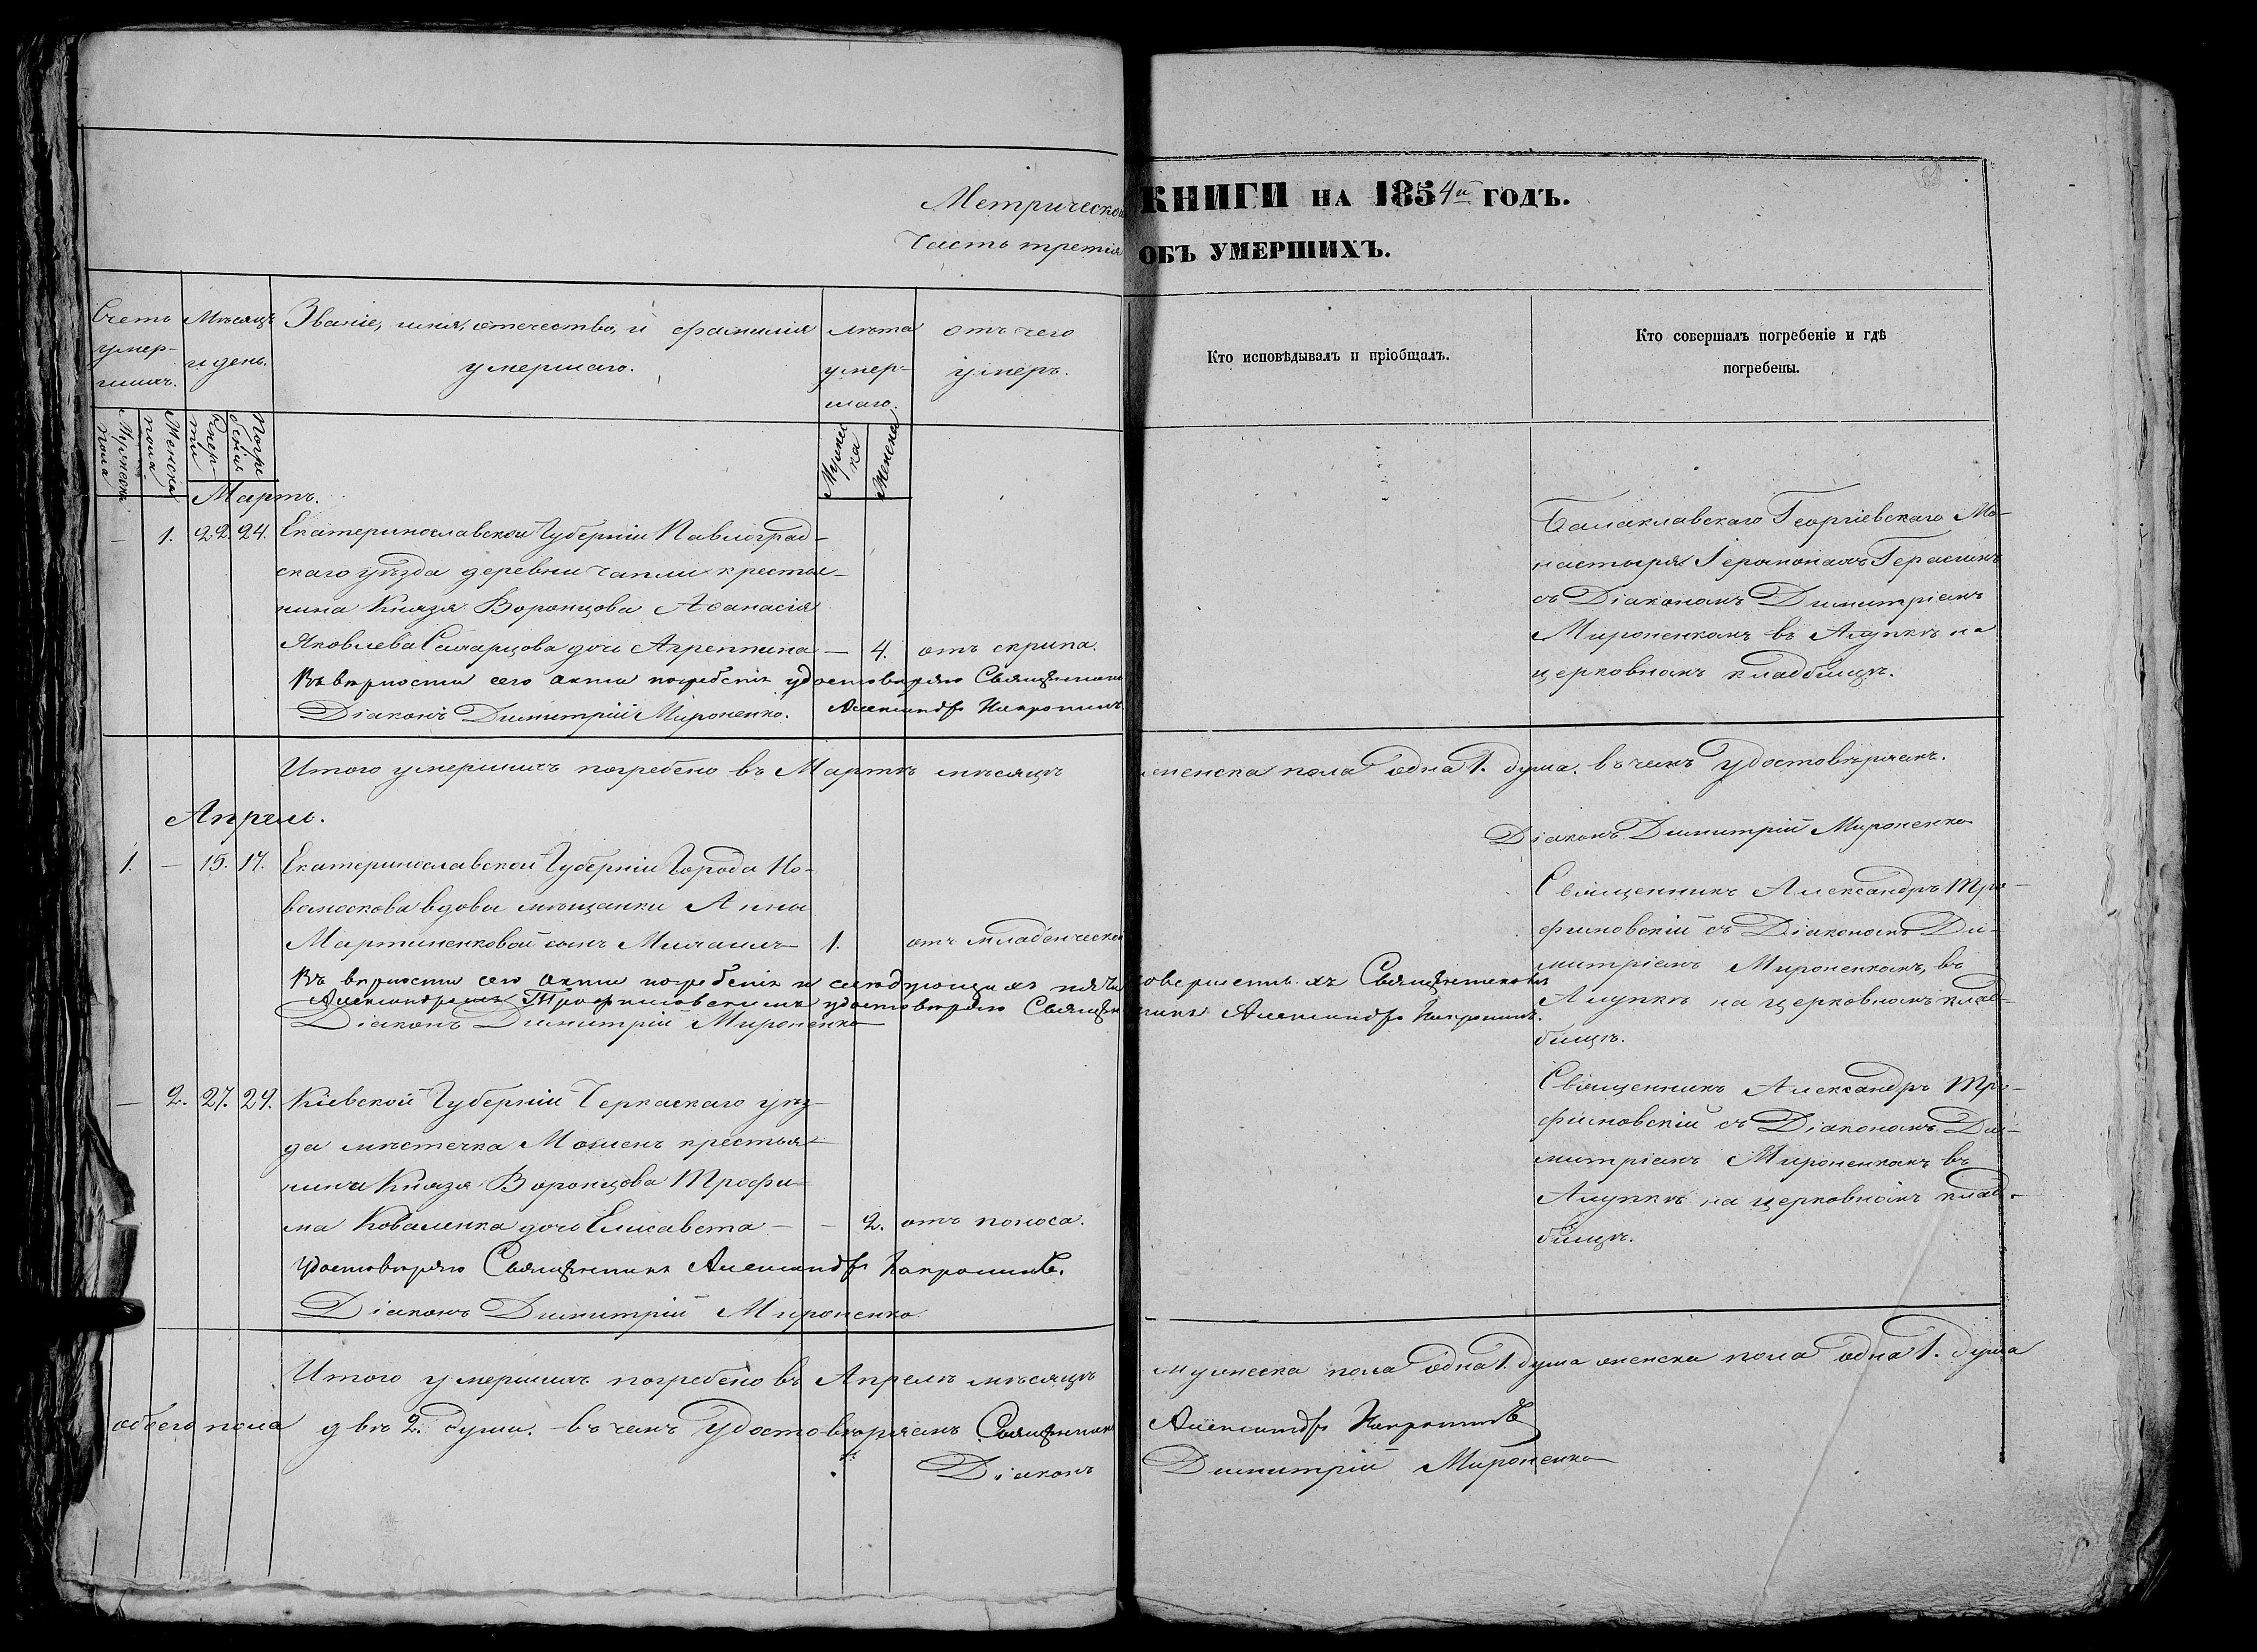 Метрической КНИГИ НА 1854й ГОДЪ.
Часть третія ОБЪ УМЕРШИХЪ.
Счетъ умер-шихъ.
Мужеска пола
Женска пола
Мѣсяцъ и день.
Смер-ти
Погре бенія
Званіе, имя, отечество, и фамилія умершаго.
Лѣта умер-шаго.
Мужес ка
Женска
отъ чего умеръ.
Кто исповѣдывалъ и пріобщалъ.
Кто совершалъ погребеніе и гдѣ погребены.
Мартъ.
— 1. 22. 24. Екатеринославской Губерніи Павлоград-
скаго уѣзда деревни Чапли крестья-
нина Князя Воронцова Аѳанасія
Яковлева Самарцова дочь Агрепина — 4. отъ скрипа.
Въ вѣрности сего акта погребенія удостовѣряю Священникъ
Александръ
Діаконъ Димитрій Мироненко.
Балаклавскаго Георгіевскаго Мо-
настыря Іеромонахъ Герасимъ
съ Діакономъ Димитріемъ
Мироненкомъ въ Алупкѣ на
церковномъ кладбищѣ.
Итого умершихъ погребено въ Мартѣ мѣсяцѣ женска пола одна 1. душа. въ чемъ удостовѣряемъ.
Діаконъ Димитрій Мироненко
Апрель.
1. — 15. 17. Екатеринославской Губерніи Города Но-
вомоскова вдовы мѣщанки Анны
Мартиненковой сынъ Михаилъ 1. отъ младенческой
Въ вѣрности сего акта погребенія и слѣдующихъ совершенныхъ Священникомъ
Александромъ Трофимовскимъ удостовѣряю Священникъ Александръ
Діаконъ Димитрій Мироненко
Священникъ Александръ Тро-
фимовскій съ Діакономъ Ди-
митріемъ Мироненкомъ, въ
Алупкѣ на церковномъ клад-
бищѣ.
— 2. 27. 29. Кіевской Губерніи Черкаскаго уѣз-
да мѣстечка Мошенъ крестья-
нина Князя Воронцова Трофи-
ма Коваленка дочь Елисавета — — 2. отъ поноса.
Удостовѣряю Священникъ Александръ
Діаконъ Димитрій Мироненко.
Священникъ Александръ Тро-
фимовскій съ Діакономъ Ди-
митріемъ Мироненкомъ въ
Алупкѣ на церковномъ клад-
бищѣ.
Итого умершихъ погребено въ Апрелѣ мѣсяцѣ мужеска пола одна 1. душа женска пола одна 1. душа
обоего пола двѣ 2. души. въ чемъ удостовѣряемъ Священникъ Александръ
Діаконъ Димитрій Мироненко